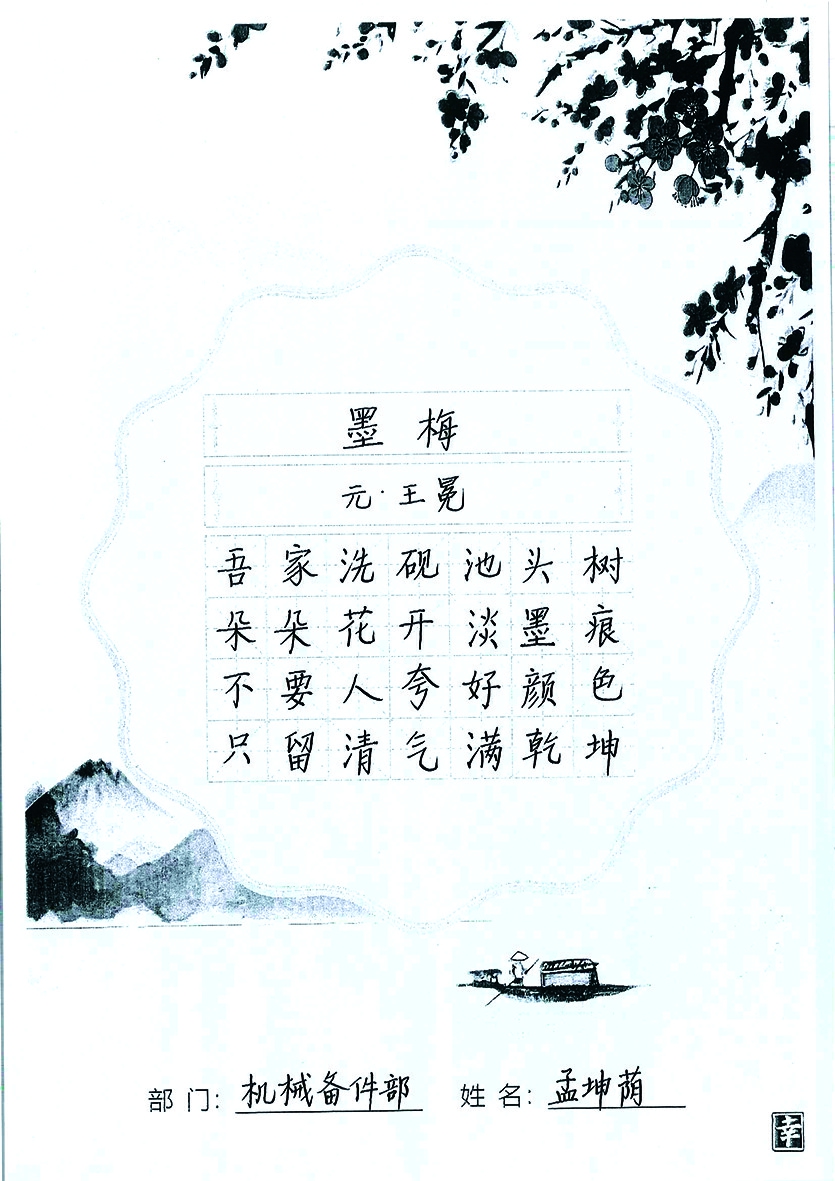 墨梅
元·王冕
吾家洗砚池头树
朵朵花开淡墨痕
不要人夸好颜色
只留清气满乾坤
部门：机械备件部 姓名：孟坤荫
幸